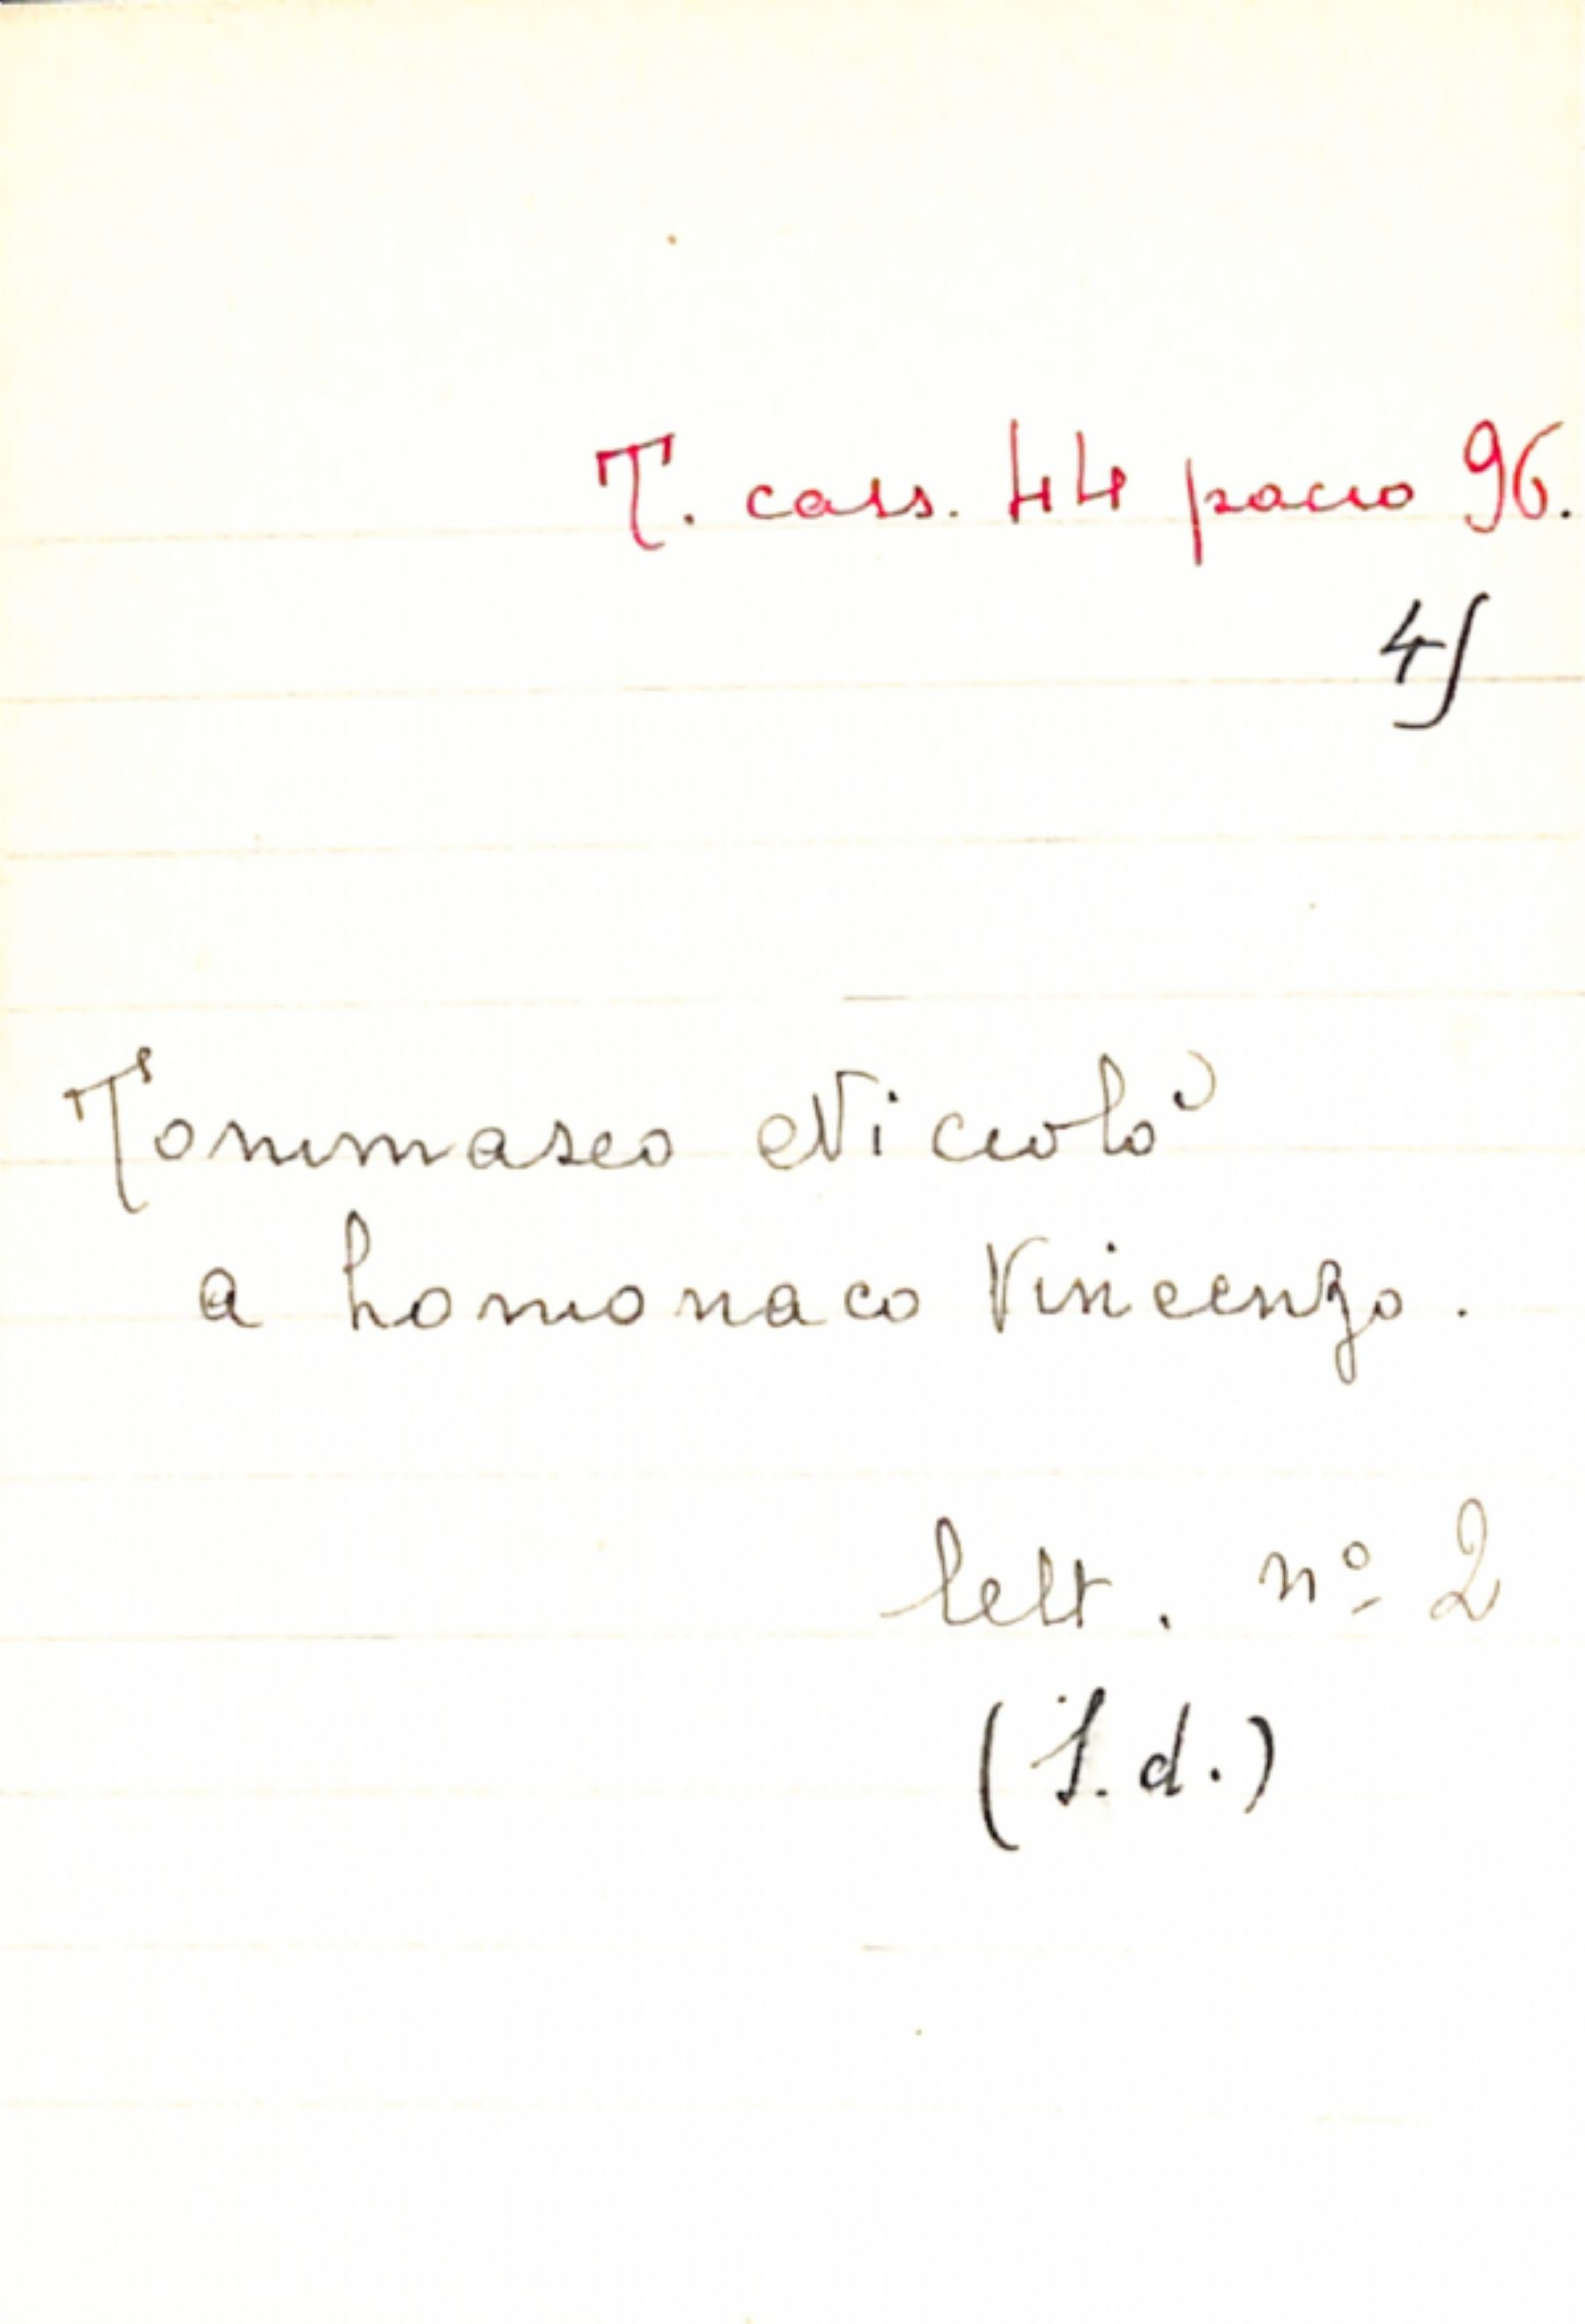 T. cass. 44 pacco 96.
45
Tommaseo Niccolò
a Lomonaco Vincenzo.
lett. nº 2
(S.d.)